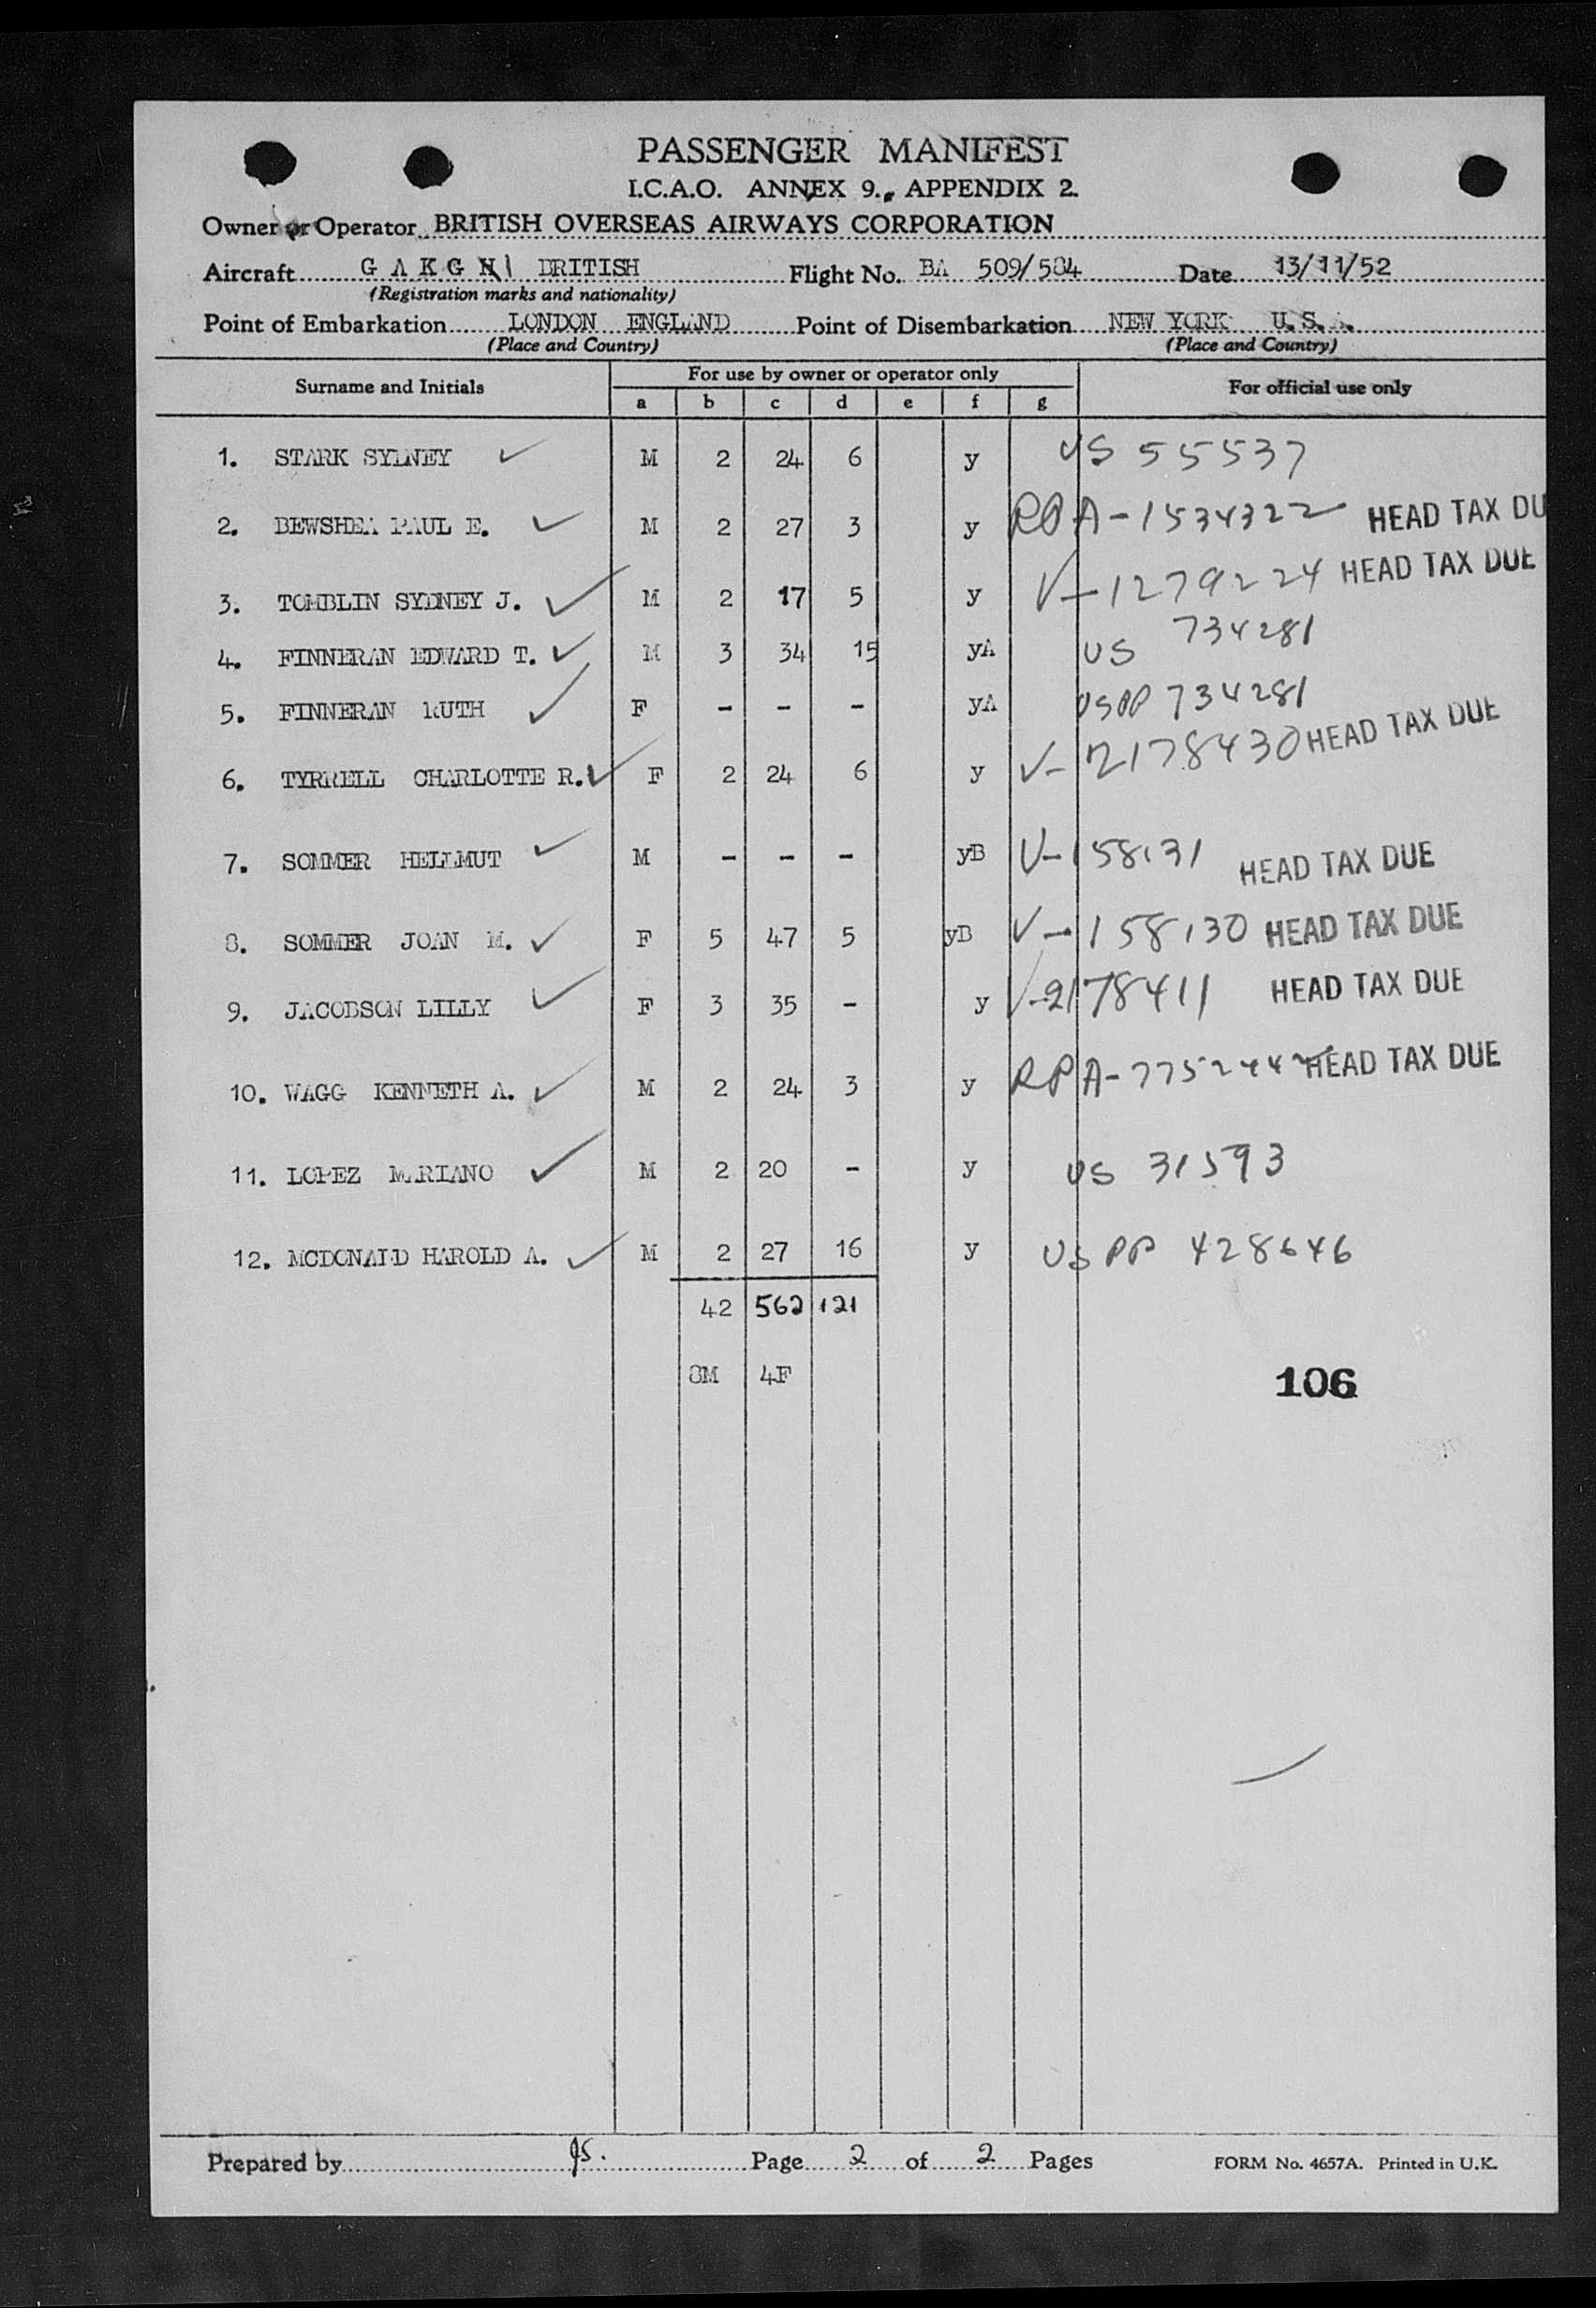 PASSENGER MANIFEST
I.C.A.O. ANNEX 9., APPENDIX 2.
Owner or Operator BRITISH OVERSEAS AIRWAYS CORPORATION
Aircraft G A K G BRITISH Flight No. BA 509/504 Date 13/11/52
(Registration marks and nationality)
Point of Embarkation LONDON ENGLAND Point of Disembarkation NEW YORK U.S.
(Place and Country) (Place and Country)
Surname and Initials For use by owner or operator only For official use only
a b c d e f g
1. STARK SYDNEY M 2 24 6 y US 55537
2. BEWSHEA PAUL E. M 2 27 3 y RP A-1534322 HEAD TAX DU
3. TOMBLIN SYDNEY J. M 2 17 5 y V-1279224 HEAD TAX DUE
4. FINNERAN EDWARD T. M 3 34 15 yA US 734281
5. FINNERAN RUTH F - - - yA USPP 734281
6. TYRRELL CHARLOTTE R. F 2 24 6 y V-2178430 HEAD TAX DUE
7. SOMMER HELLMUT M - - - yB V-158131 HEAD TAX DUE
8. SOMMER JOAN M. F 5 47 5 yB V-158130 HEAD TAX DUE
9. JACOBSON LILLY F 3 35 - y V-2178411 HEAD TAX DUE
10. WAGG KENNETH A. M 2 24 3 y RP A-775244 HEAD TAX DUE
11. LOPEZ MARIANO M 2 20 - y US 31593
12. MCDONALD HAROLD A. M 2 27 16 y US PP 428646
42 562 121
8M 4F
106
Prepared by JS. Page 2 of 2 Pages FORM No. 4657A. Printed in U.K.